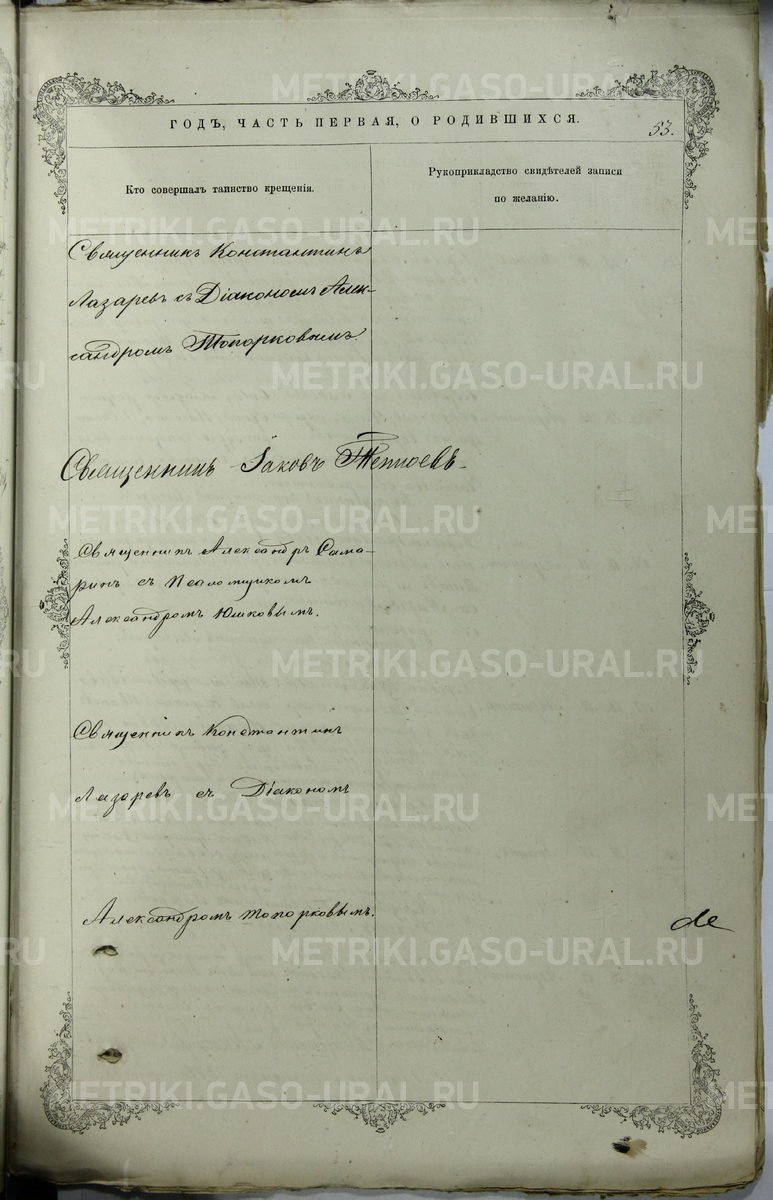 METRIKI.GASO-URAL.RU
ГОДЪ, ЧАСТЬ ПЕРВАЯ, О РОДИВШИХСЯ.
53.
Кто совершалъ таинство крещенія.
Рукоприкладство свидѣтелей записи
по желанію.
Священникъ Константинъ
Лазаревъ съ Діакономъ Алек-
сандромъ Топорковымъ.
Священникъ Іаковъ
Священникъ Александръ Сама-
ринъ съ Псаломщикомъ
Александромъ Юшковымъ.
Священникъ Константинъ
Лазаревъ съ Діакономъ
Александромъ Топорковымъ.